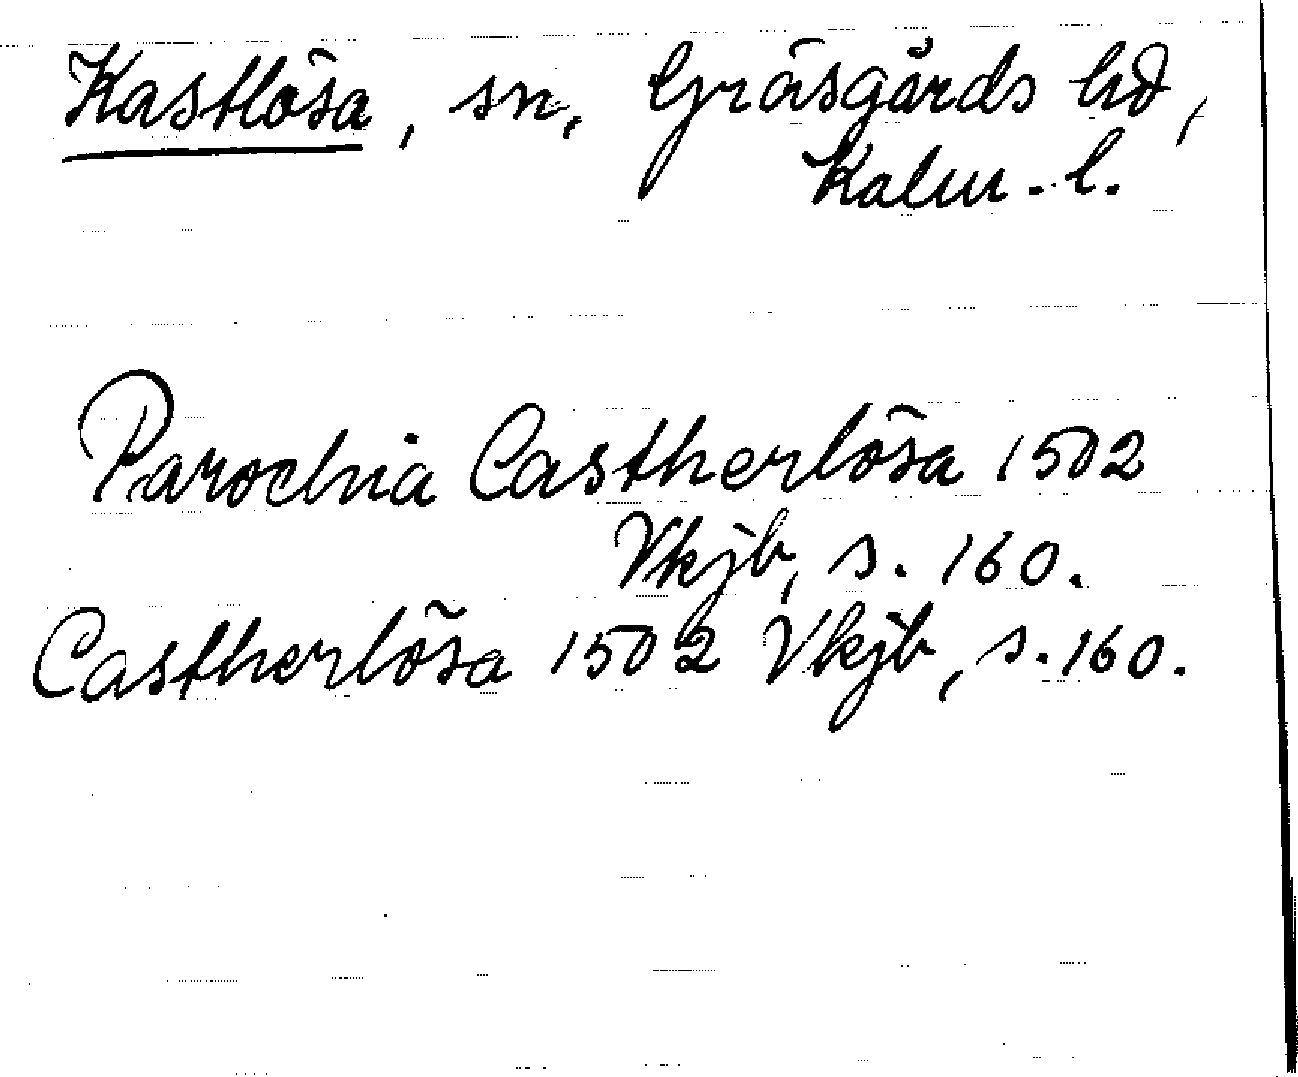 Kastlösa, sn, Gräsgårds hd,
Kalm. l.
Parochia Castherlösa 1502
Vkjb, s. 160.
Castherlösa 1502 Vkjb, s. 160.